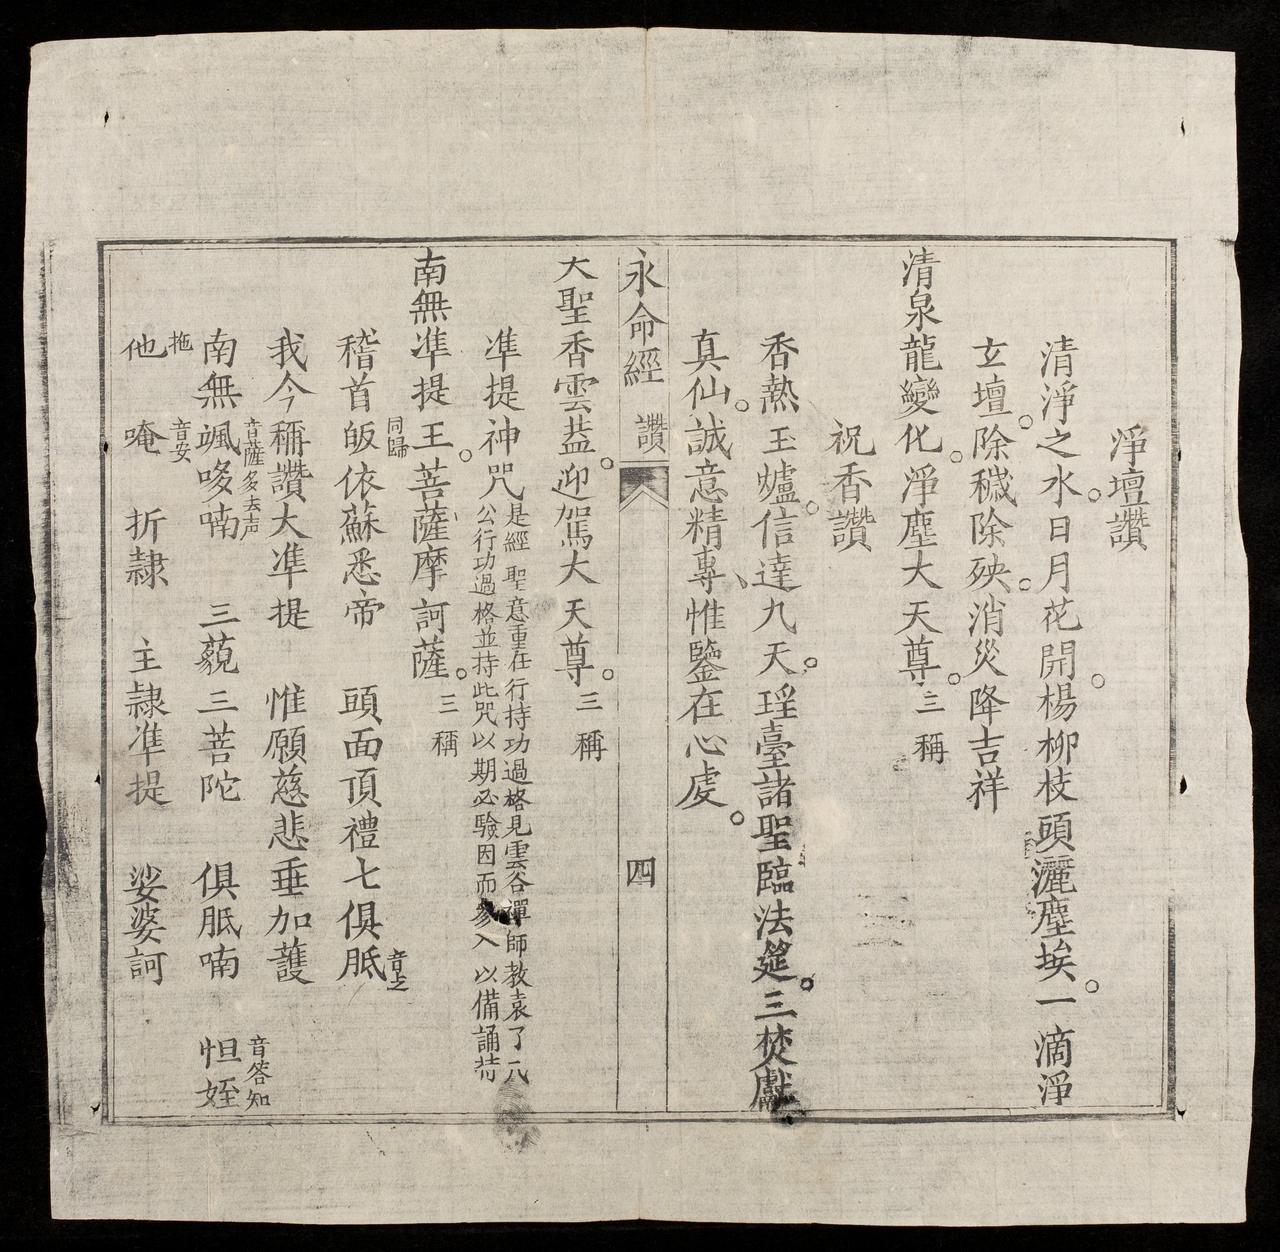 淨壇讚
清淨之水。日月花開。楊柳枝頭灑塵埃。一滴淨
玄壇。除穢除殃。消災降吉祥
清泉龍變化。淨塵大天尊。三稱
祝香讚
香熱玉爐。信達九天。瑶臺諸聖臨法筵。三焚獻
真仙。誠意精專、惟鑒在心虔。
永命經 讚 四
大聖香雲葢。迎駕大天尊。三稱
凖提神咒
是經聖意重在行持功過格見雲谷禪師教袁了凡
公行功過格並持此咒以期必驗因而參入以備誦持
南無凖提王。菩薩、摩訶薩。三稱
稽首皈同歸依蘇悉帝 頭面頂禮七俱胝音之
我今稱讚大凖提 惟願慈悲垂加護
南無颯哆喃音薩多去声 三藐三菩陀 俱胝喃 怛姪音答知
他拖 唵音安 折隷 主隷凖提 娑婆訶